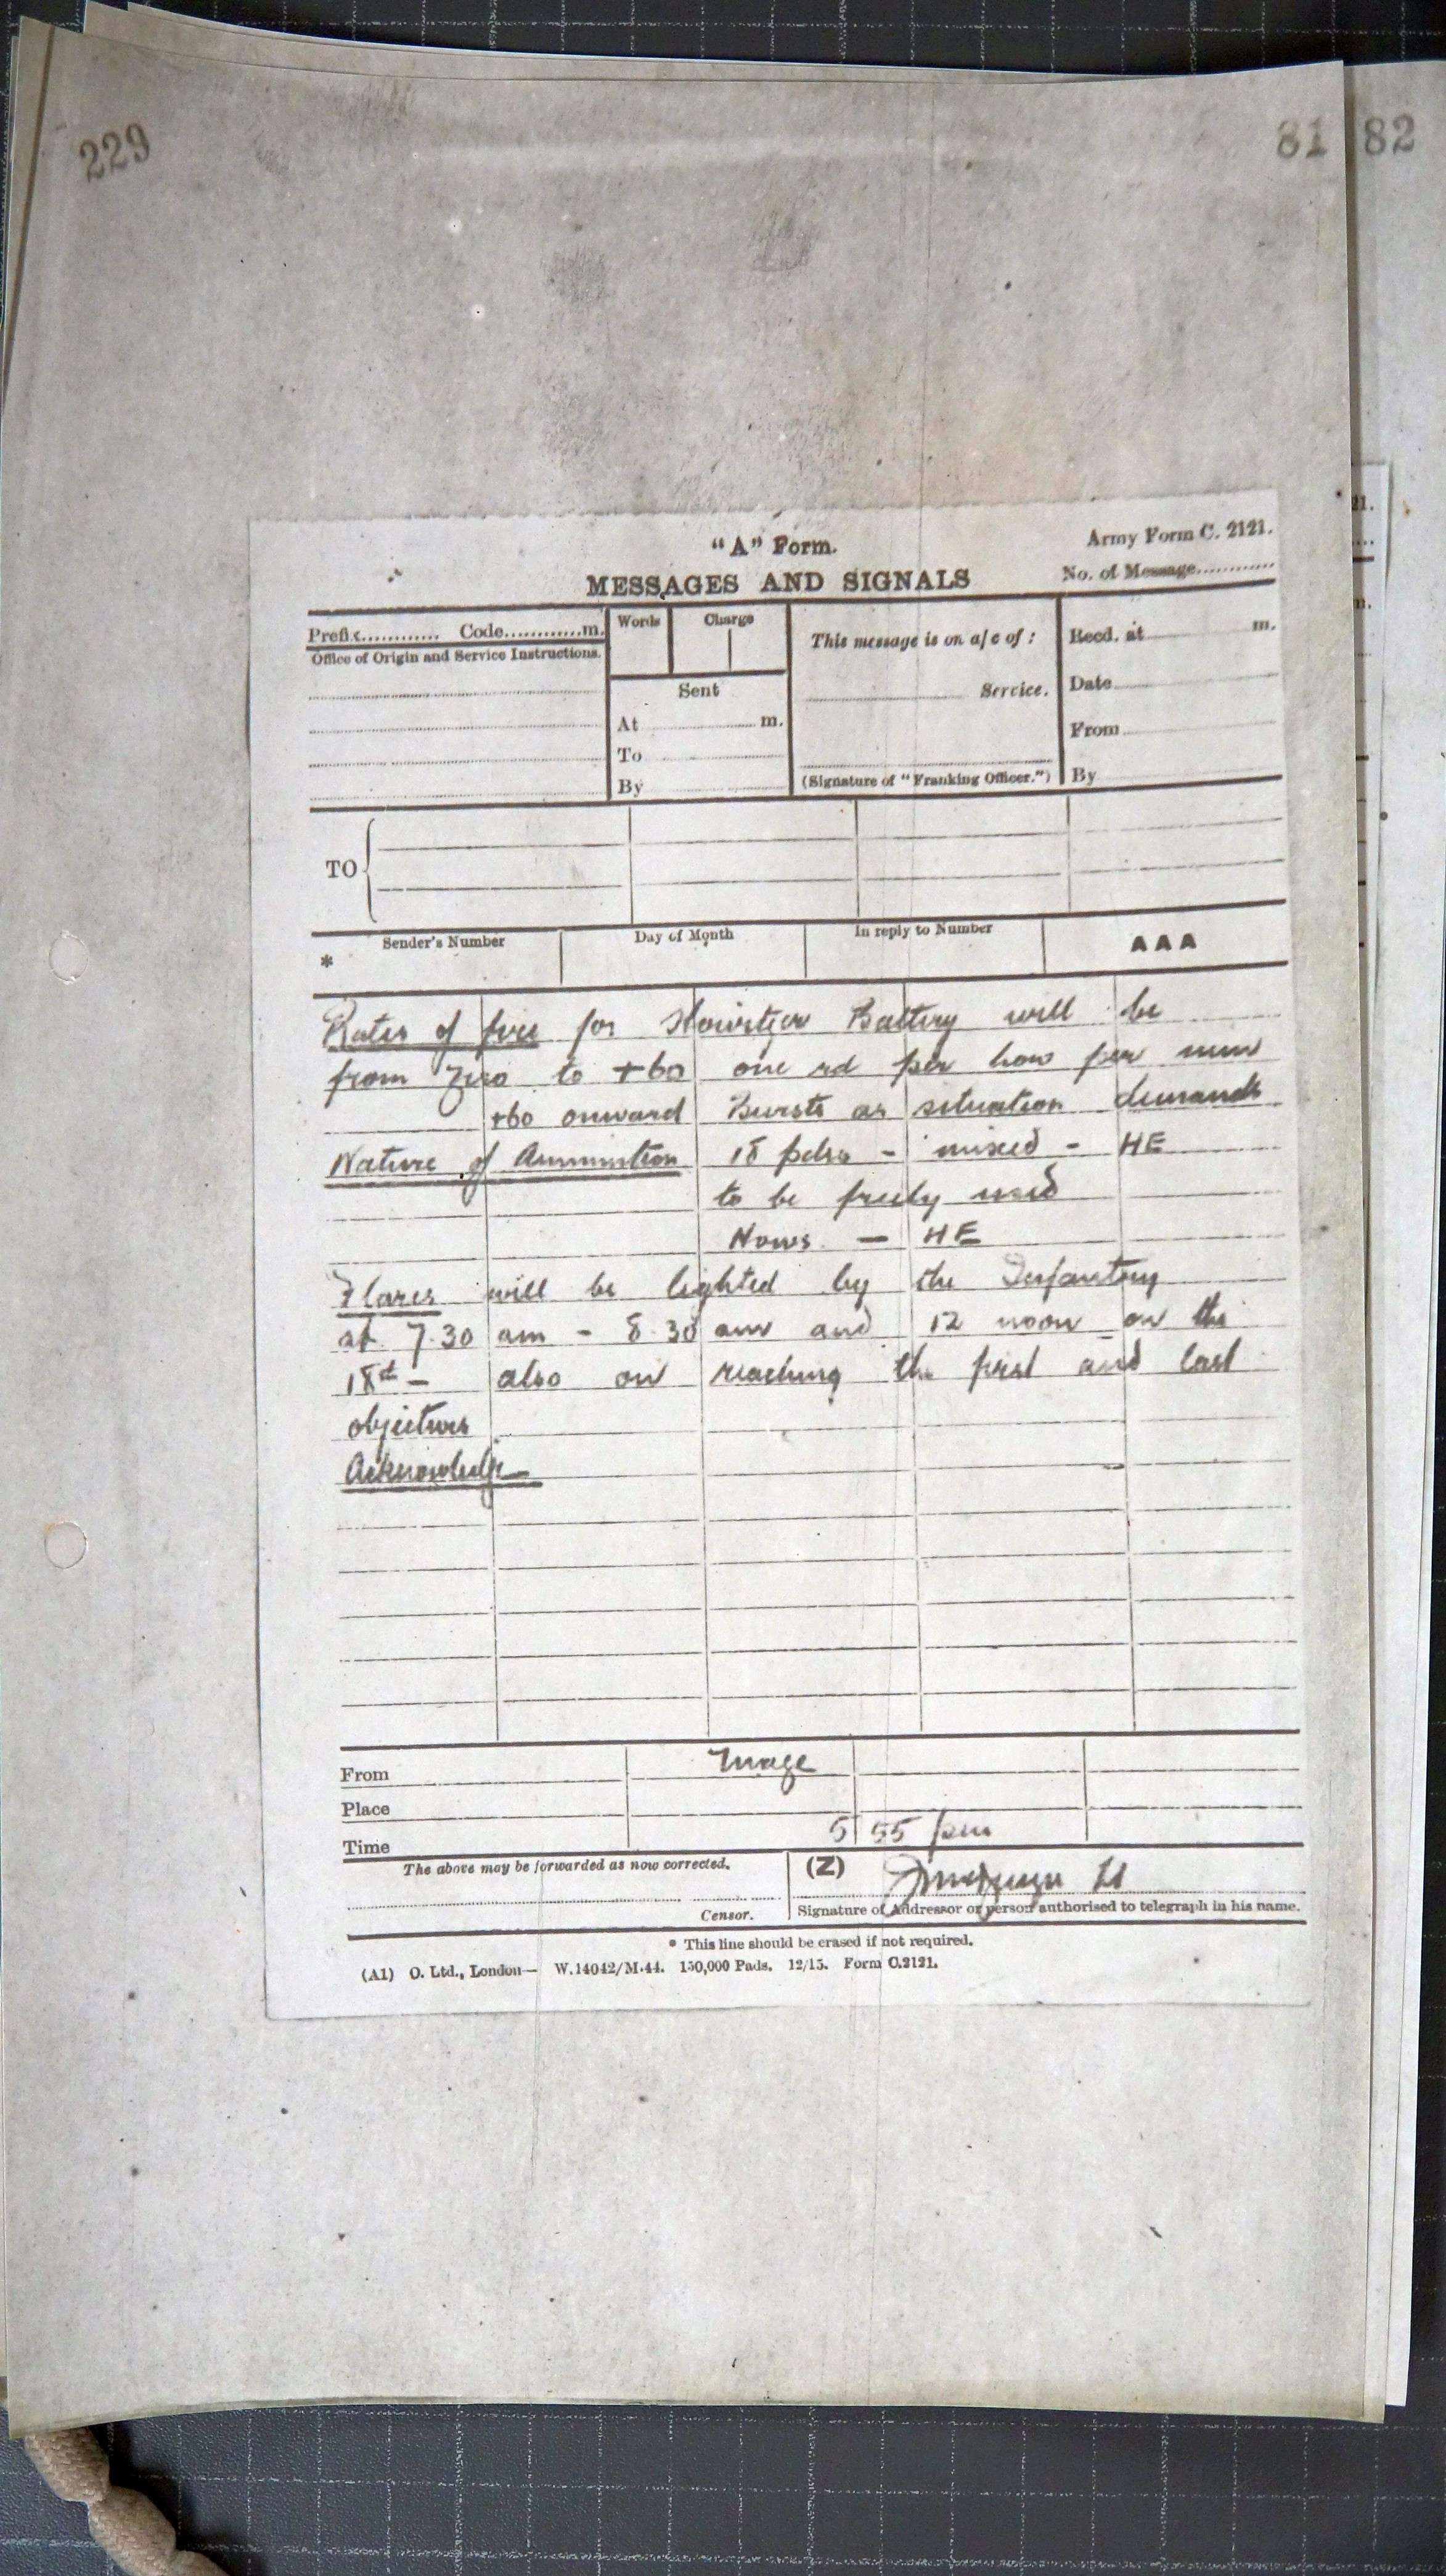 229
81
82
"A" Form.
Army Form C. 2121.
MESSAGES AND SIGNALS
No. of Message............
Prefix............ Code............m.
Words
Charge
This message is on a/c of :
Recd. at............m.
Office of Origin and Service Instructions.
Sent
Service.
Date
At............m.
From
To
By
(Signature of "Franking Officer.")
By
TO
Sender's Number
Day of Month
In reply to Number
AAA
*
Rates of fire for Howitzer Battery will be
from Zero to +60 one rd per how per min
+60 onward Bursts as situation demands
Nature of Ammunition 18 pdrs - mixed - HE
to be freely used
Hows - HE
Flares will be lighted by the Infantry
at 7.30 am - 8.30 am and 12 noon on the
18th - also on reaching the first and last
objectives
Acknowledge
From
Place
Time 5 55 pm
The above may be forwarded as now corrected.
(Z)
Lt
Censor.
Signature of Addressor or person authorised to telegraph in his name.
* This line should be erased if not required.
(A1) O. Ltd., London— W.14042/M.44. 150,000 Pads. 12/15. Form C.2121.